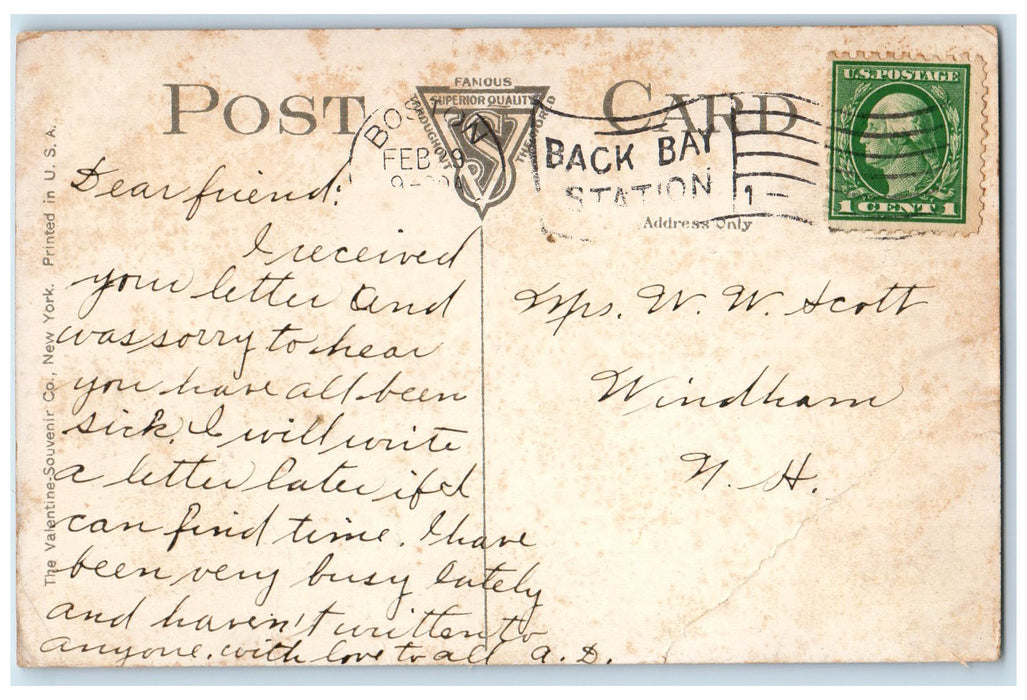 POST CARD
FAMOUS
SUPERIOR QUALITY
THROUGHOUT
THE WORLD
BOSTON
FEB 9
BACK BAY
STATION
1
U.S. POSTAGE
1 CENT 1
Address Only
The Valentine-Souvenir Co., New York. Printed in U. S. A.
Dear friend:
I received
your letter and
was sorry to hear
you have all been
sick. I will write
a letter later if I
can find time. I have
been very busy lately
and haven't written to
anyone. with love to all A. D.
Mrs. W. W. Scott
Windham
N. H.